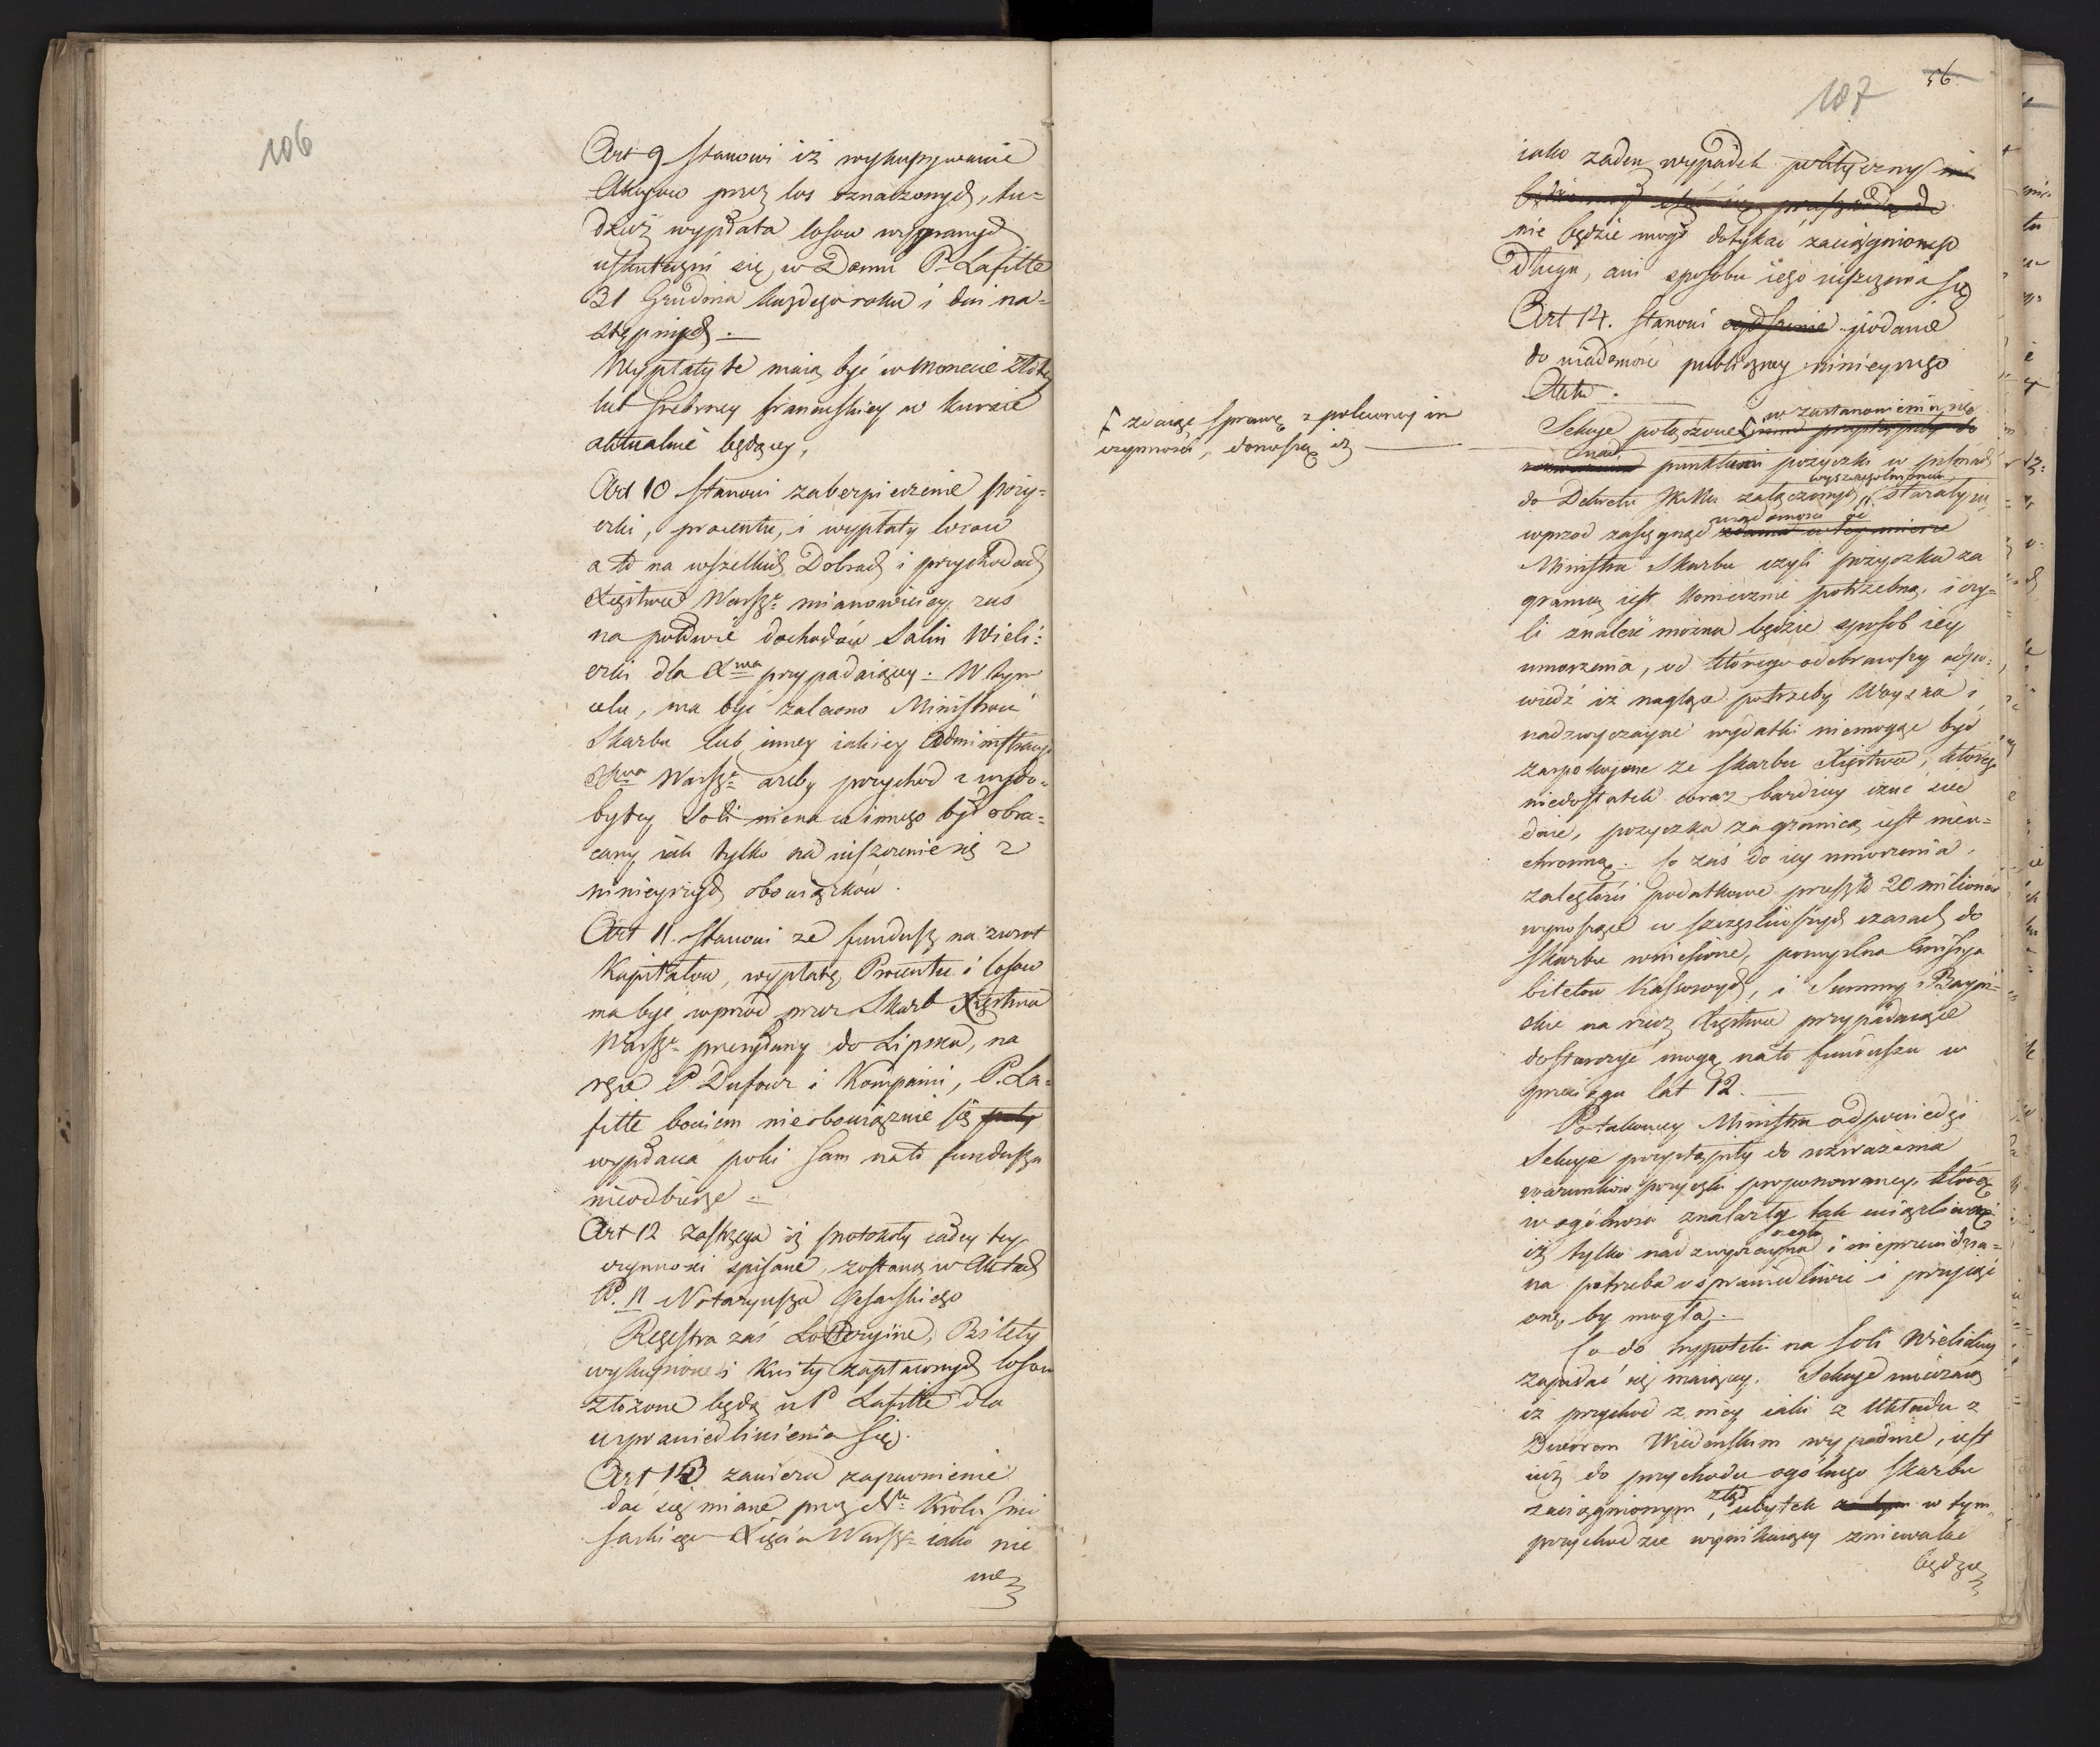 106
Art 9 stanowi iż wykupywanie
Akcyow przez los oznaczonych, tu=
dzież wypłata losow wygranych
uskuteczni się w Domu P. Lafitte
31 Grudnia każdego roku i dni na=
stępnych. —
Wypłaty te maią być w monecie złotey
lub srebrney francuskiey w kursie
aktualnie będącey,
Art 10 stanowi zabezpieczenie poży=
czki, procentu, i wypłaty losow
a to na wszelkich Dobrach i przychodach
Xięstwa Warsz: mianowiciey zas
na połowie dochodow Salin Wieli=
czki dla Xwa przypadaiącey. W tym
celu, ma być zalecono Ministrowi
Skarbu lub inney iakiey Administracyi
Xtwa Warsz: azeby przychod z wydo=
bytey Soli nie na co innego był obra=
cany iak tylko na uiszczenie się z
ninieyszych obowiązków.
Art 11. Stanowi ze fundusz na zwrot
Kapitałow, wypłatę Procentu i losow
ma być wprzod przez Skarb Xięstwa
Warsz: przesyłany do Lipska, na
ręce P. Dufour i Kompanii, P. La=
fitte bowiem nieobowiązuie się
wypłacać poki sam na to funduszu
nieodbierze —
Art 12 zastrzega iż protokoły całey tey
czynności spisane, zostaną w Aktach
P. N Notaryusza Cesarskiego
Regestra zaś Lotteryine, Bilety
wykupione i kwity zapłaconych losow
złozone będą u P Lafitte dla
usprawiedliwienia się.
Art 13 zawiera zapewnienie
dać się miane przez Króla Sas
Xięcia Warsz: iako nie
me
107
56
iako zaden wypadek polityczny nie
nie będzie mogł dotykać zaciągnionego
Długu, ani sposobu iego uiszczenia się
Art 14. stanowi podanie
do wiadomości publiczney ninieyszego
Aktu.
zdaiąc sprawę z poleconey im
czynności, donoszą iż
Sekcye połączone w zastanowieniu się
nad punktami pozyczki w
do Dekretu załączonych wyszczegolnionemi, starały się
wprzod zasięgnąć wiadomości od
Ministra Skarbu czyli pożyczka za
granicą iest koniecznie potrzebną, i czy=
li znaleść można będzie sposob iey
umorzenia, od którego odebrawszy odpo=
wiedź iż naglące potrzeby Woyska i
nadzwyczayne wydatki niemogące być
zaspokojone ze skarbu Xięstwa, którego
niedostatek coraz bardziey czuć się
daie, pozyczka za granicą iest nieu=
chronną. Co zaś do iey umorzenia,
zaległości podatkowe przeszło 20 milionow
wynoszące w szczęśliwszych czasach do
skarbu wniesione, pomyslna Emissya
biletow kassowych, i Summy Bayoń=
skie na rzecz Xięstwa przypadaiące
dostarczyć mogą na to funduszu w
przeciągu lat 12. —
Po takowey Ministra odpowiedzi
Sekcye przystąpiły do rozwazenia
warunkow pozyczki proponowaney, którą
w ogólności znalazły tak uciążliwą
iż tylko nadzwyczayna nagła i nieprzewidzia=
na potrzeba usprawiedliwić i przyiąć
onę by mogła. —
Co do hypoteki na soli Wielickiey
zapadać się maiącey. Sekcye uważaią
iż przychod z niey iaki z Układu z
Dworem Wiedenskim wypadnie, iest
iuż do przychodu ogólnego skarbu
zaciągnionym, ztąd ubytek w tym
przychodzie wynikaiący zniewalać
będzie